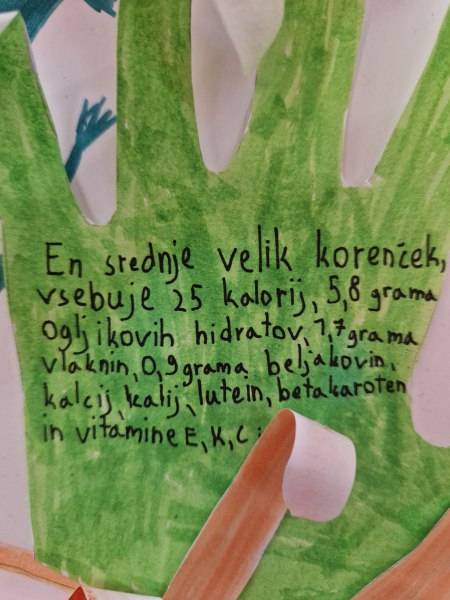 En srednje velik korenček,
vsebuje 25 kalorij, 5,8 grama
ogljikovih hidratov, 1,7 grama
vlaknin, 0,9 grama beljakovin,
kalcij, kalij, lutein, betakaroten
in vitamine E, K, C